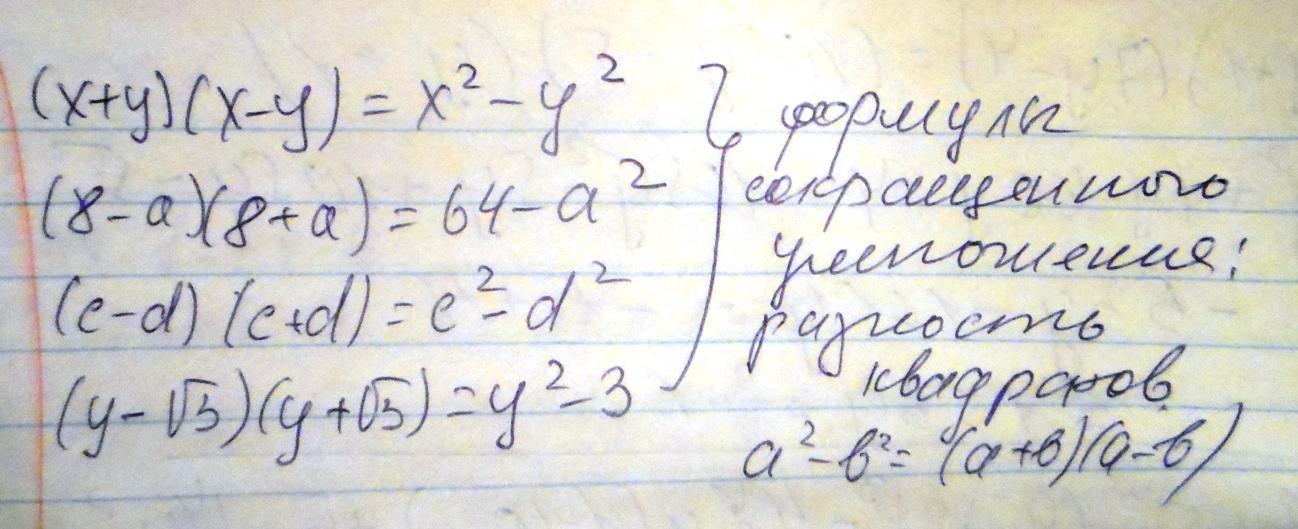 (x+y)(x-y) = x² - y²
(8-a)(8+a) = 64 - a²
(c-d)(c+d) = c² - d²
(y-√3)(y+√3) = y² - 3
формулы
сокращенного
умножения:
разность
квадратов
a² - b² = (a+b)(a-b)